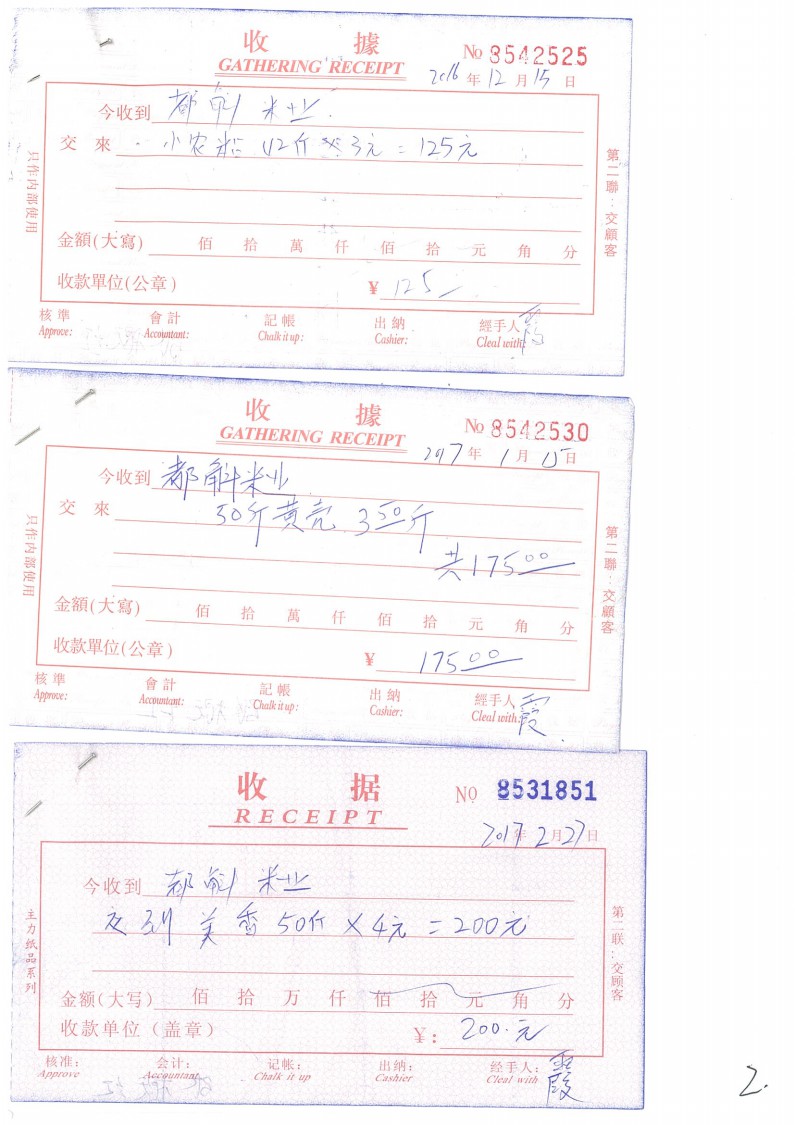 收 據
GATHERING RECEIPT
No 8542525
2016 年 12 月 15 日
今收到 都斛米业
交 來 小农粘 42斤 × 3元 = 125元
金額(大寫) 佰 拾 萬 仟 佰 拾 元 角 分
收款單位(公章) ¥ 125
核準 會計 記帳 出納 經手人 霞
Approve: Accountant: Chalk it up: Cashier: Cleal with:
只作内部使用
第二聯:交顧客
收 據
GATHERING RECEIPT
No 8542530
2017 年 1 月 15 日
今收到 都斛米业
交 來 50斤黄壳 3.50斤
共17500
金額(大寫) 佰 拾 萬 仟 佰 拾 元 角 分
收款單位(公章) ¥ 17500
核準 會計 記帳 出納 經手人 霞
Approve: Accountant: Chalk it up: Cashier: Cleal with:
只作内部使用
第二聯:交顧客
收 据
RECEIPT
NO 8531851
2017年 2月27日
今收到 都斛 米业
交到 美香 50斤 × 4元 = 200元
金额(大写) 佰 拾 万 仟 佰 拾 元 角 分
收款单位(盖章) ¥: 200.元
核准: 会计: 记帐: 出纳: 经手人: 霞
Approve Accountant Chalk it up Cashier Cleal with
主力纸品系列
第二联:交顾客
2.